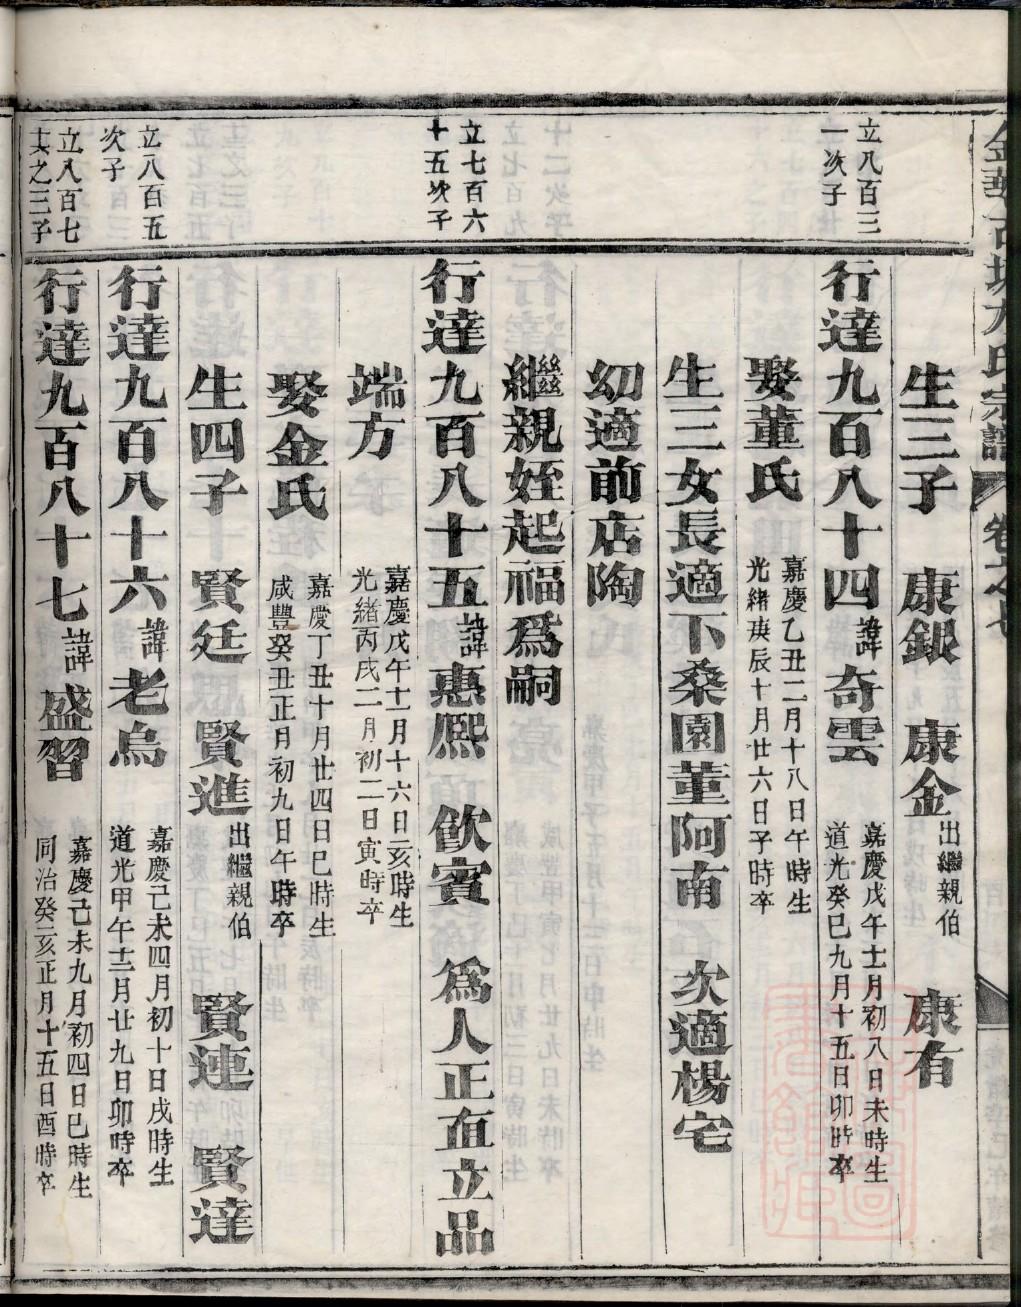 生三子　康銀　康金出繼親伯　康有
立八百三
一次子
行達九百八十四諱奇雲
嘉慶戊午十一月初八日未時生
道光癸巳九月十五日卯時卒
娶董氏
嘉慶乙丑二月十八日午時生
光緒庚辰十月廿六日子時卒
生三女長適下桑園董阿南　次適楊宅
幼適前店陶
繼親姪起福爲嗣
立七百六
十五次子
行達九百八十五諱惠熙　飲賓　爲人正直立品
端方
嘉慶戊午十一月十六日亥時生
光緒丙戌二月初二日寅時卒
娶金氏
嘉慶丁丑十月廿四日巳時生
咸豐癸丑正月初九日午時卒
生四子　賢廷　賢進出繼親伯　賢連　賢達
立八百五
次子
行達九百八十六諱老烏
嘉慶己未四月初十日戌時生
道光甲午十二月廿九日卯時卒
立八百七
其之三子
行達九百八十七諱盛習
嘉慶己未九月初四日巳時生
同治癸亥正月十五日酉時卒